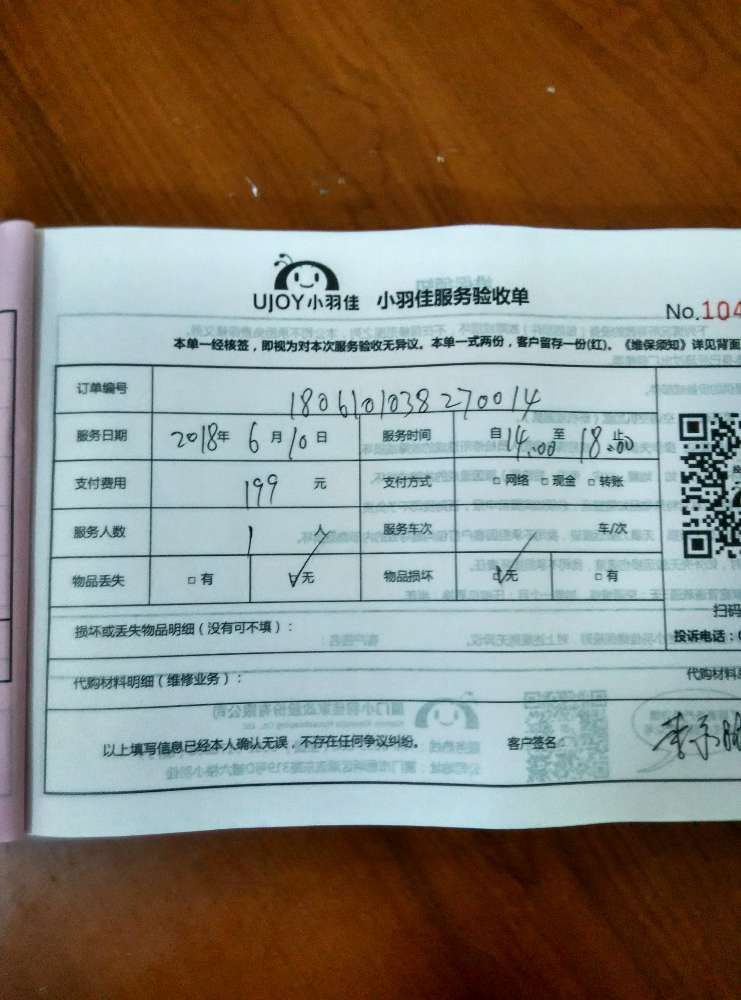 UJOY小羽佳 小羽佳服务验收单
No.104
本单一经核签，即视为对本次服务验收无异议。本单一式两份，客户留存一份(红)。《维保须知》详见背面
订单编号 180610103827 0014
服务日期 2018年 6月10日 服务时间 自14:00至18:00止
支付费用 199 元 支付方式 □网络 □现金 □转账
服务人数 1 人 服务车次 车/次
物品丢失 □有 ☑无 物品损坏 ☑无 □有
扫码
损坏或丢失物品明细（没有可不填）：
投诉电话：
代购材料明细（维修业务）：
代购材料
以上填写信息已经本人确认无误，不存在任何争议纠纷。 客户签名：